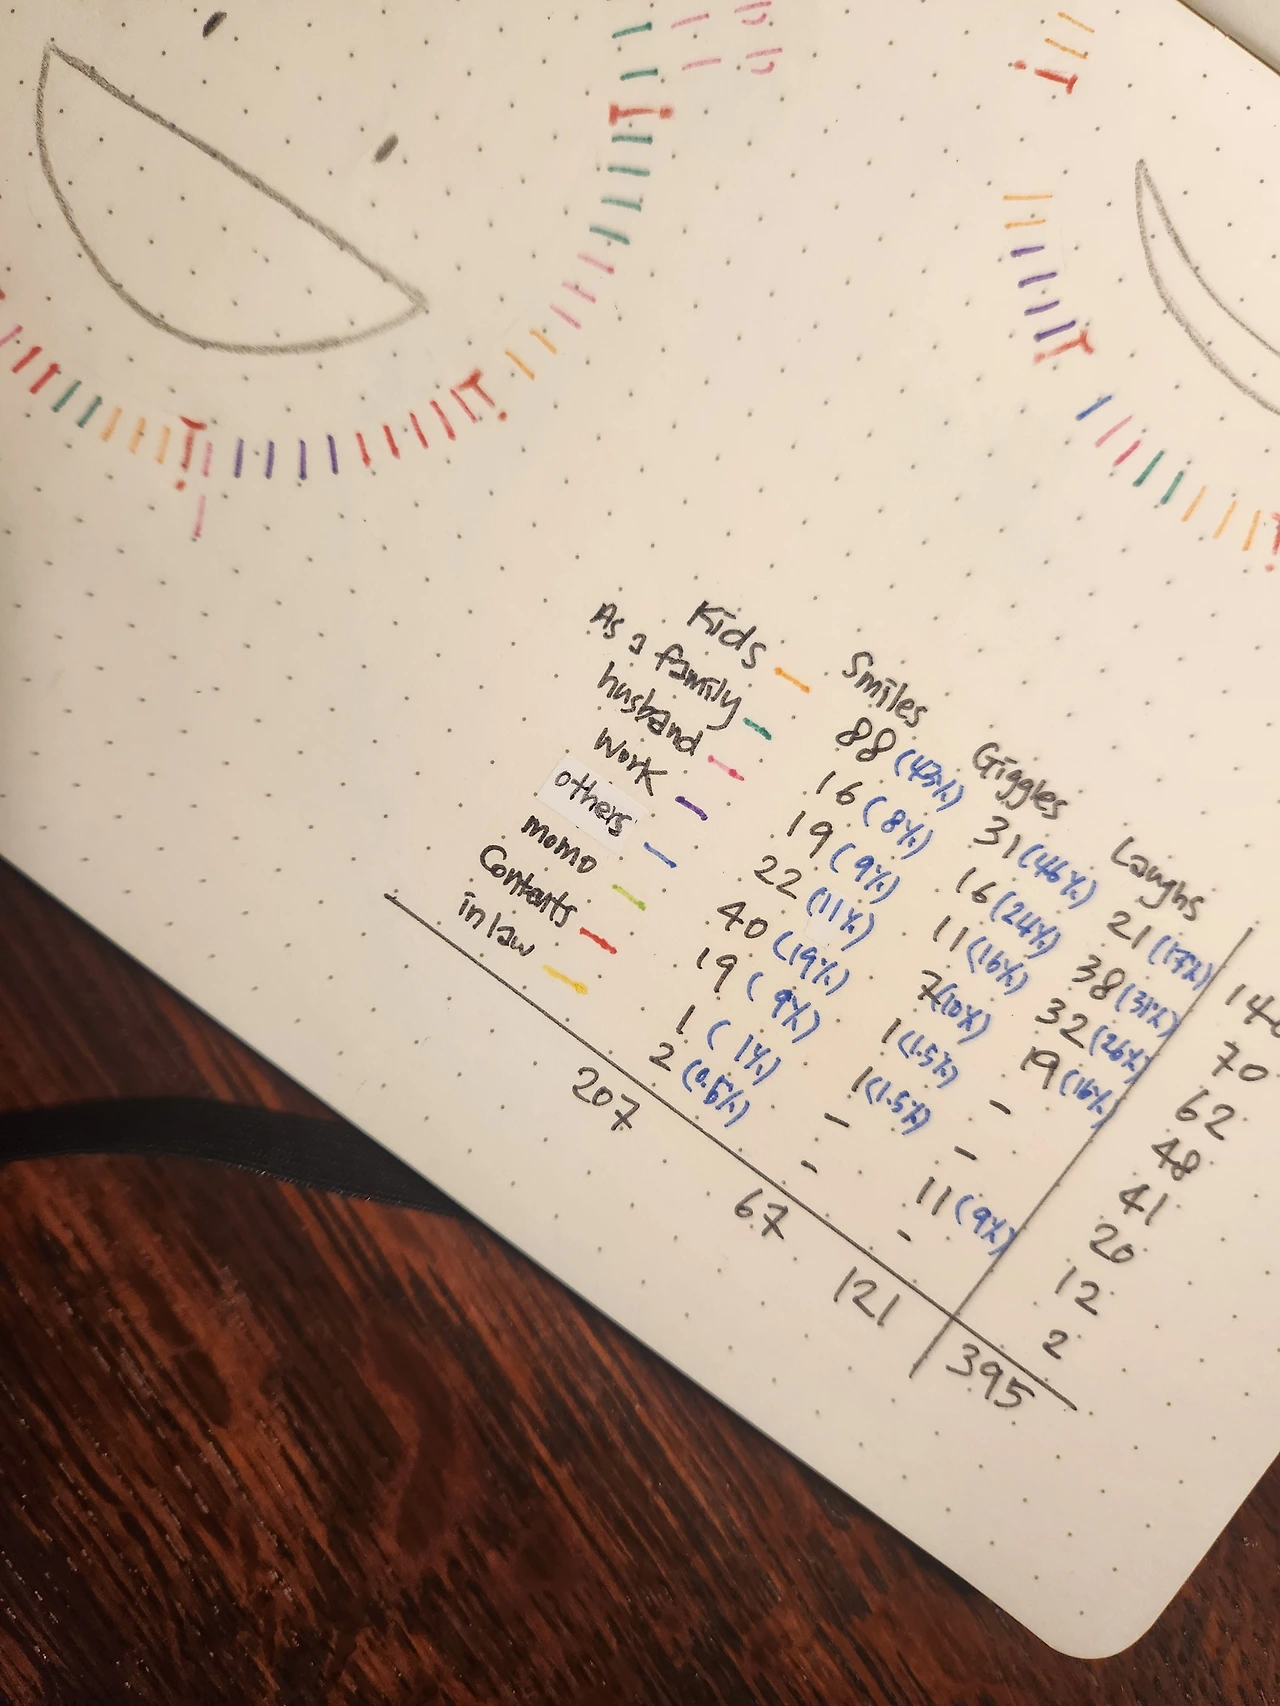 Smiles Giggles Laughs
Kids 88 (43%) 31 (46%) 21 (17%) 140
As a family 16 (8%) 16 (24%) 38 (31%) 70
husband 19 (9%) 11 (16%) 32 (26%) 62
Work 22 (11%) 7 (10%) 19 (16%) 48
others 40 (19%) 1 (1.5%) - 41
momo 19 (9%) 1 (1.5%) - 20
Contents 1 (1%) - 11 (9%) 12
in law 2 (0.5%) - - 2
207 67 121 395